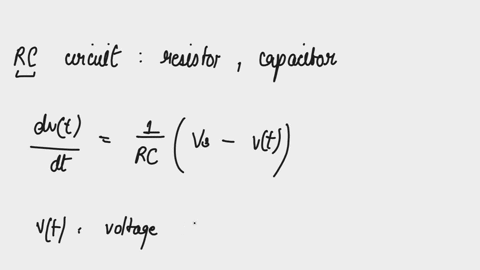 RC circuit : resistor , capacitor
dv(t)/dt = 1/RC (Vs - v(t))
v(t) : voltage